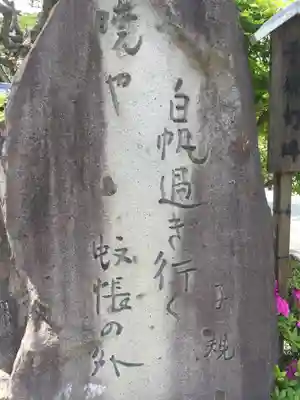 暁や
白帆過き行く
蚊帳の外
子規